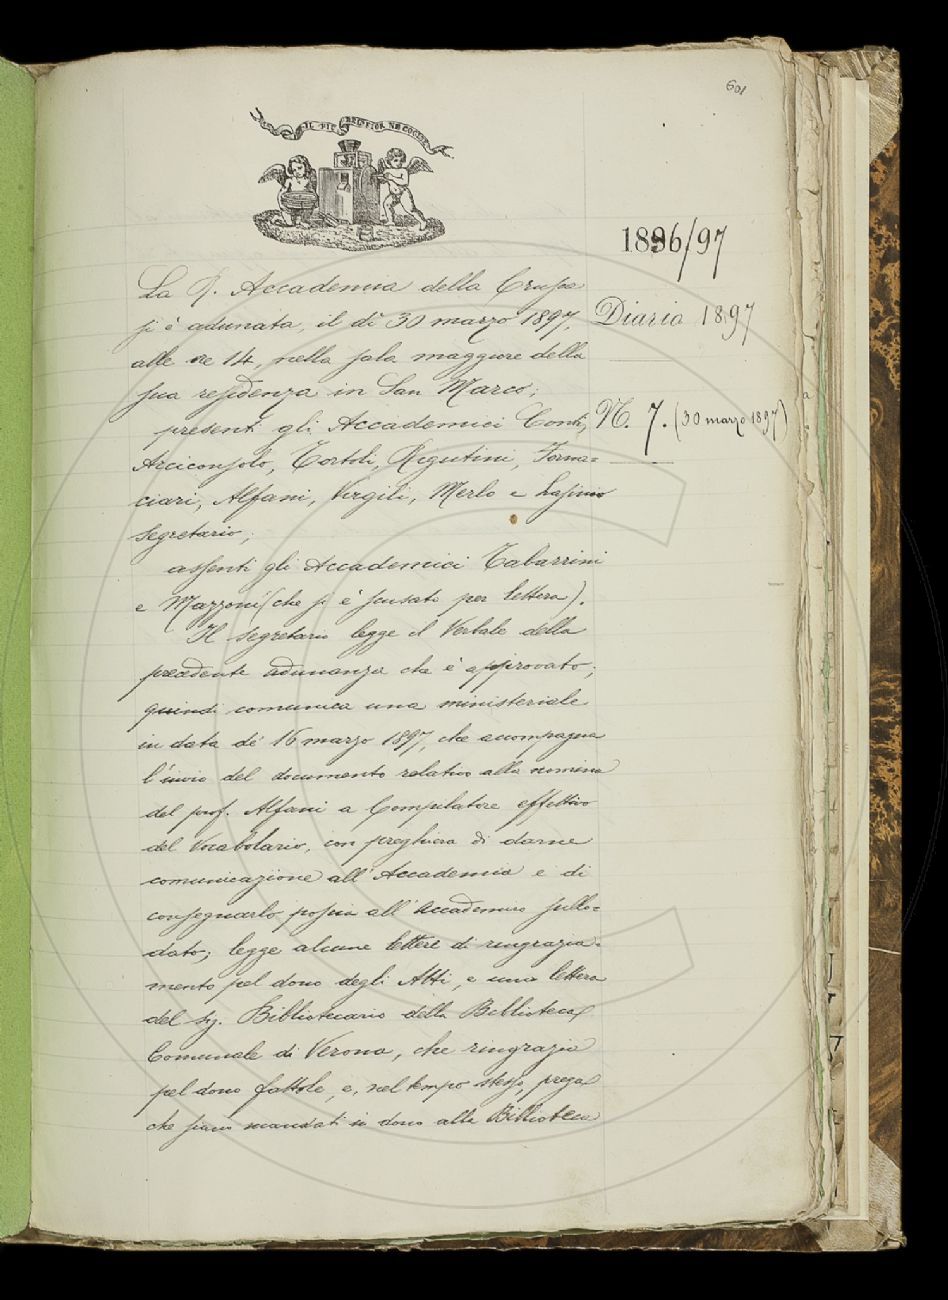 601
IL PIÙ BEL FIOR NE COGLIE
1896/97
La R. Accademia della Crusca
si è adunata, il dì 30 marzo 1897,
Diario 1897
alle ore 14, nella sala maggiore della
sua residenza in San Marco;
presenti gli Accademici Conti,
N. 7. (30 marzo 1897)
Arciconsolo, Tortoli, Rigutini, Forna=
ciari, Alfani, Virgili, Merlo e Lasinio
segretario;
assenti gli Accademici Tabarrini
e Mazzoni (che si è scusato per lettera).
Il segretario legge il Verbale della
precedente adunanza che è approvato;
quindi comunica una ministeriale
in data de' 16 marzo 1897, che accompagna
l'invio del documento relativo alla nomina
del prof. Alfani a Compilatore effettivo
del Vocabolario, con preghiera di darne
comunicazione all'Accademia e di
consegnarlo poscia all'Accademico sullo=
dato; legge alcune lettere di ringrazia=
mento pel dono degli Atti, e una lettera
del sig. Bibliotecario della Biblioteca
Comunale di Verona, che ringrazia
pel dono fattole, e, nel tempo stesso, prega
che siano mandati in dono alla Biblioteca